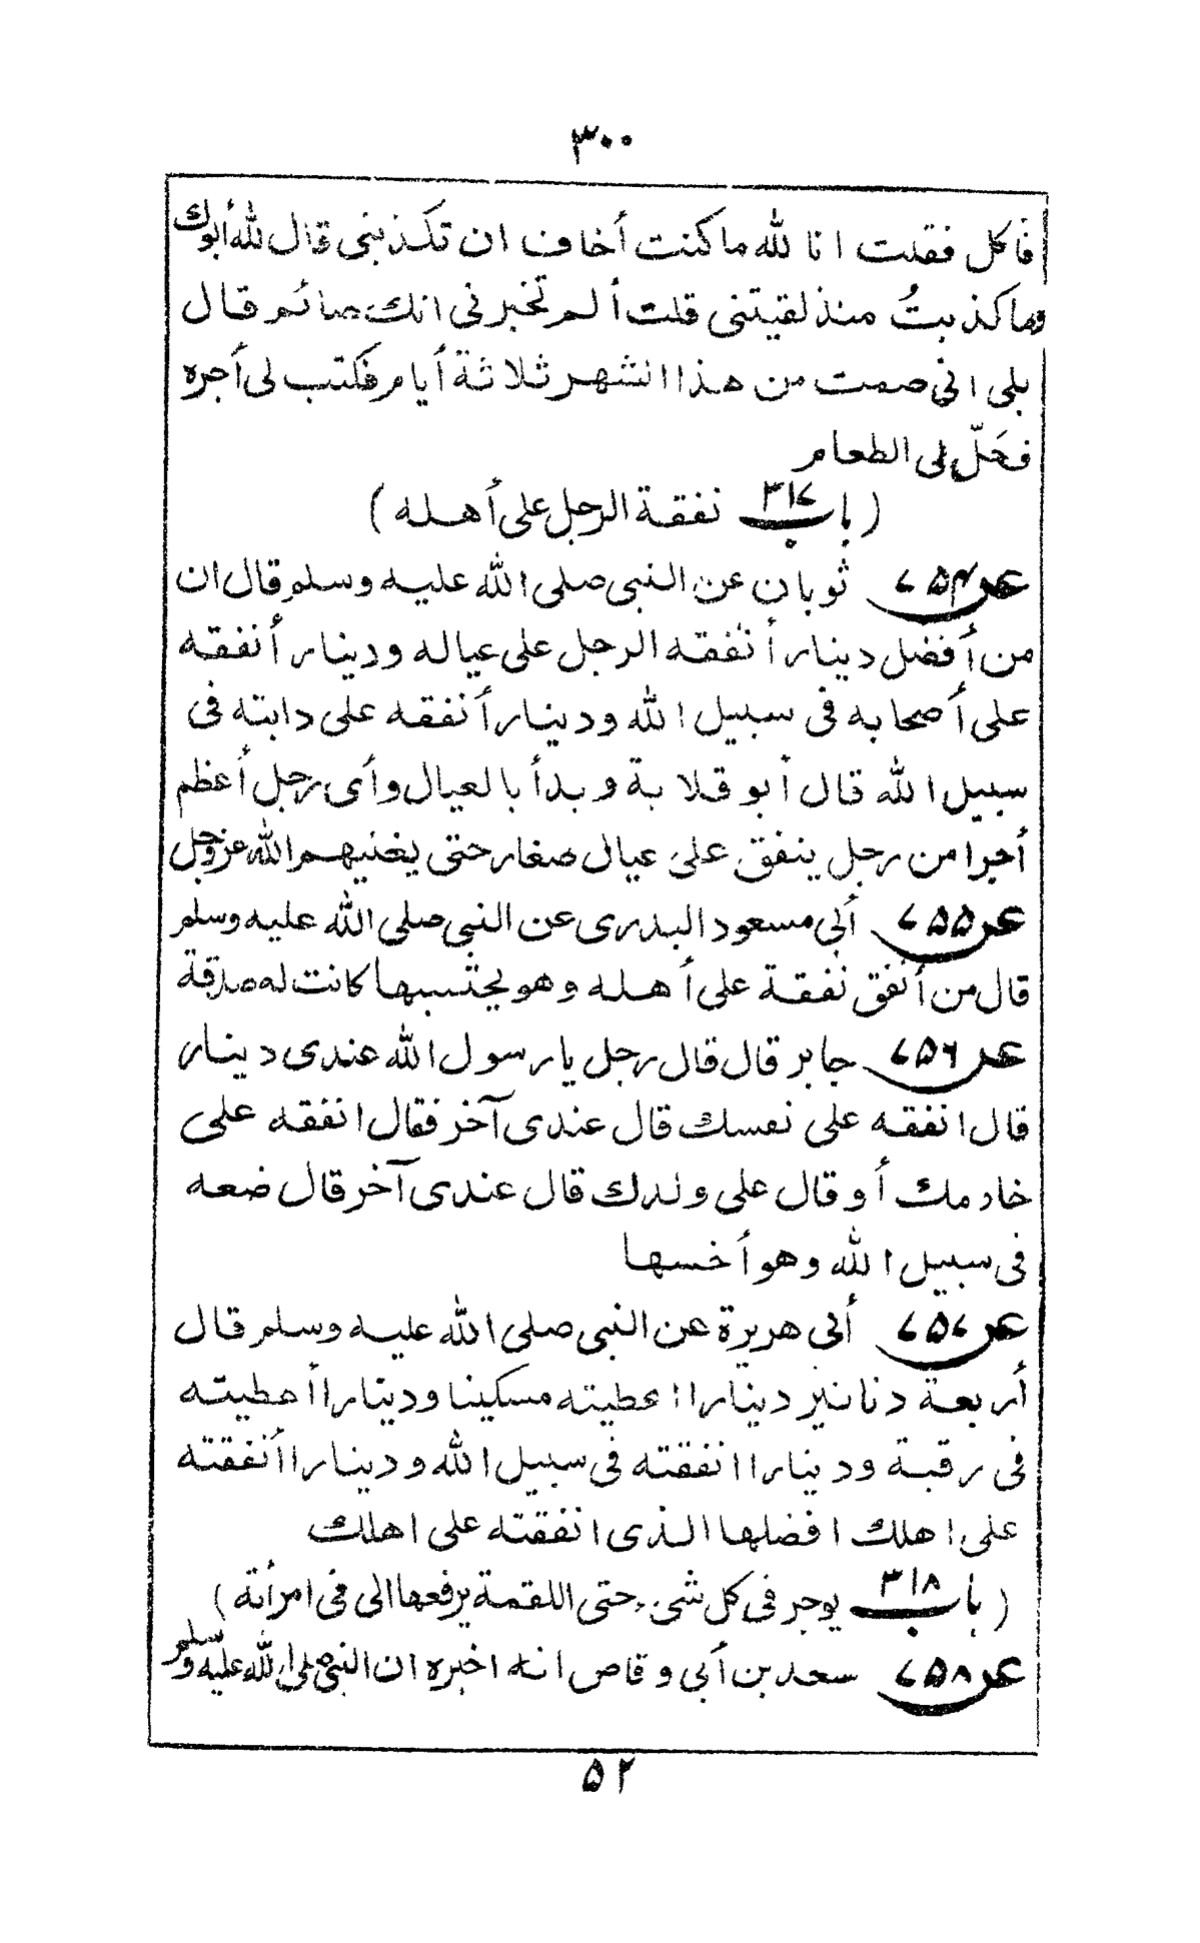 ۳۰۰
فأكل فقلت انا لله ماكنت أخاف ان تكذبنى قال لله أبوك
وما كذبتُ منذ لقيتنى قلت ألم تخبرنى انك صائم قال
بلى انى صمت من هذا الشهر ثلاثة أيام فكتب لى أجره
فحَلّ لى الطعام
(باب ۳۱۷ نفقة الرجل على أهله)
عـ ۷۵۴ ثوبان عن النبى صلى الله عليه وسلم قال ان
من أفضل دينار أنفقه الرجل على عياله ودينار أنفقه
على أصحابه فى سبيل الله ودينار أنفقه على دابته فى
سبيل الله قال أبو قلابة وبدأ بالعيال وأى رجل أعظم
أجرا من رجل ينفق على عيال صغار حتى يغنيهم الله عزوجل
عـ ۷۵۵ أبى مسعود البدرى عن النبى صلى الله عليه وسلم
قال من أنفق نفقة على أهله وهو يحتسبها كانت له صدقة
عـ ۷۵۶ جابر قال قال رجل يا رسول الله عندى دينار
قال انفقه على نفسك قال عندى آخر فقال انفقه على
خادمك أو قال على ولدك قال عندى آخر قال ضعه
فى سبيل الله وهو أخسها
عـ ۷۵۷ أبى هريرة عن النبى صلى الله عليه وسلم قال
أربعة دنانير دينارا اعطيته مسكينا ودينارا أعطيته
فى رقبة ودينارا انفقته فى سبيل الله ودينارا أنفقته
على اهلك افضلها الذى انفقته على اهلك
(باب ۳۱۸ يوجر فى كل شىء حتى اللقمة يرفعها الى فى امرأته)
عـ ۷۵۸ سعد بن أبى وقاص انه اخبره ان النبى صلى الله عليه وسلم
۵۲